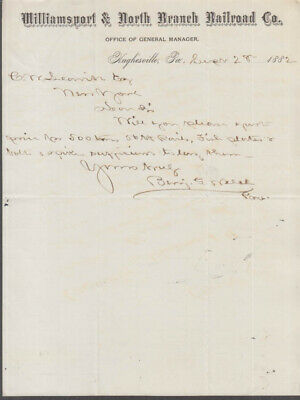 Williamsport & North Branch Railroad Co.,
OFFICE OF GENERAL MANAGER.
Hughesville, Pa., 28 1882
New York
Dear Sir
Will you please quote
price for 500 tons 56 lb Rails, Fish plates &
Yours truly
Benj. G. Welch